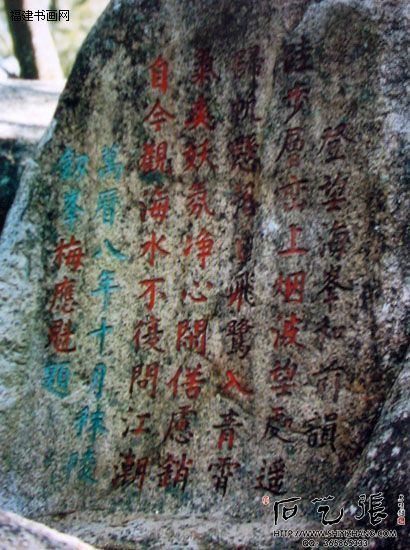 福建书画网
登望海峯和前韻
跬步層巒上烟波望處遥
歸帆懸落日飛鷺入青霄
氣爽妖氛净心閒俗慮銷
自今觀海水不復問江潮
萬曆八年十月秣陵
劒峯梅應魁題
石艺張